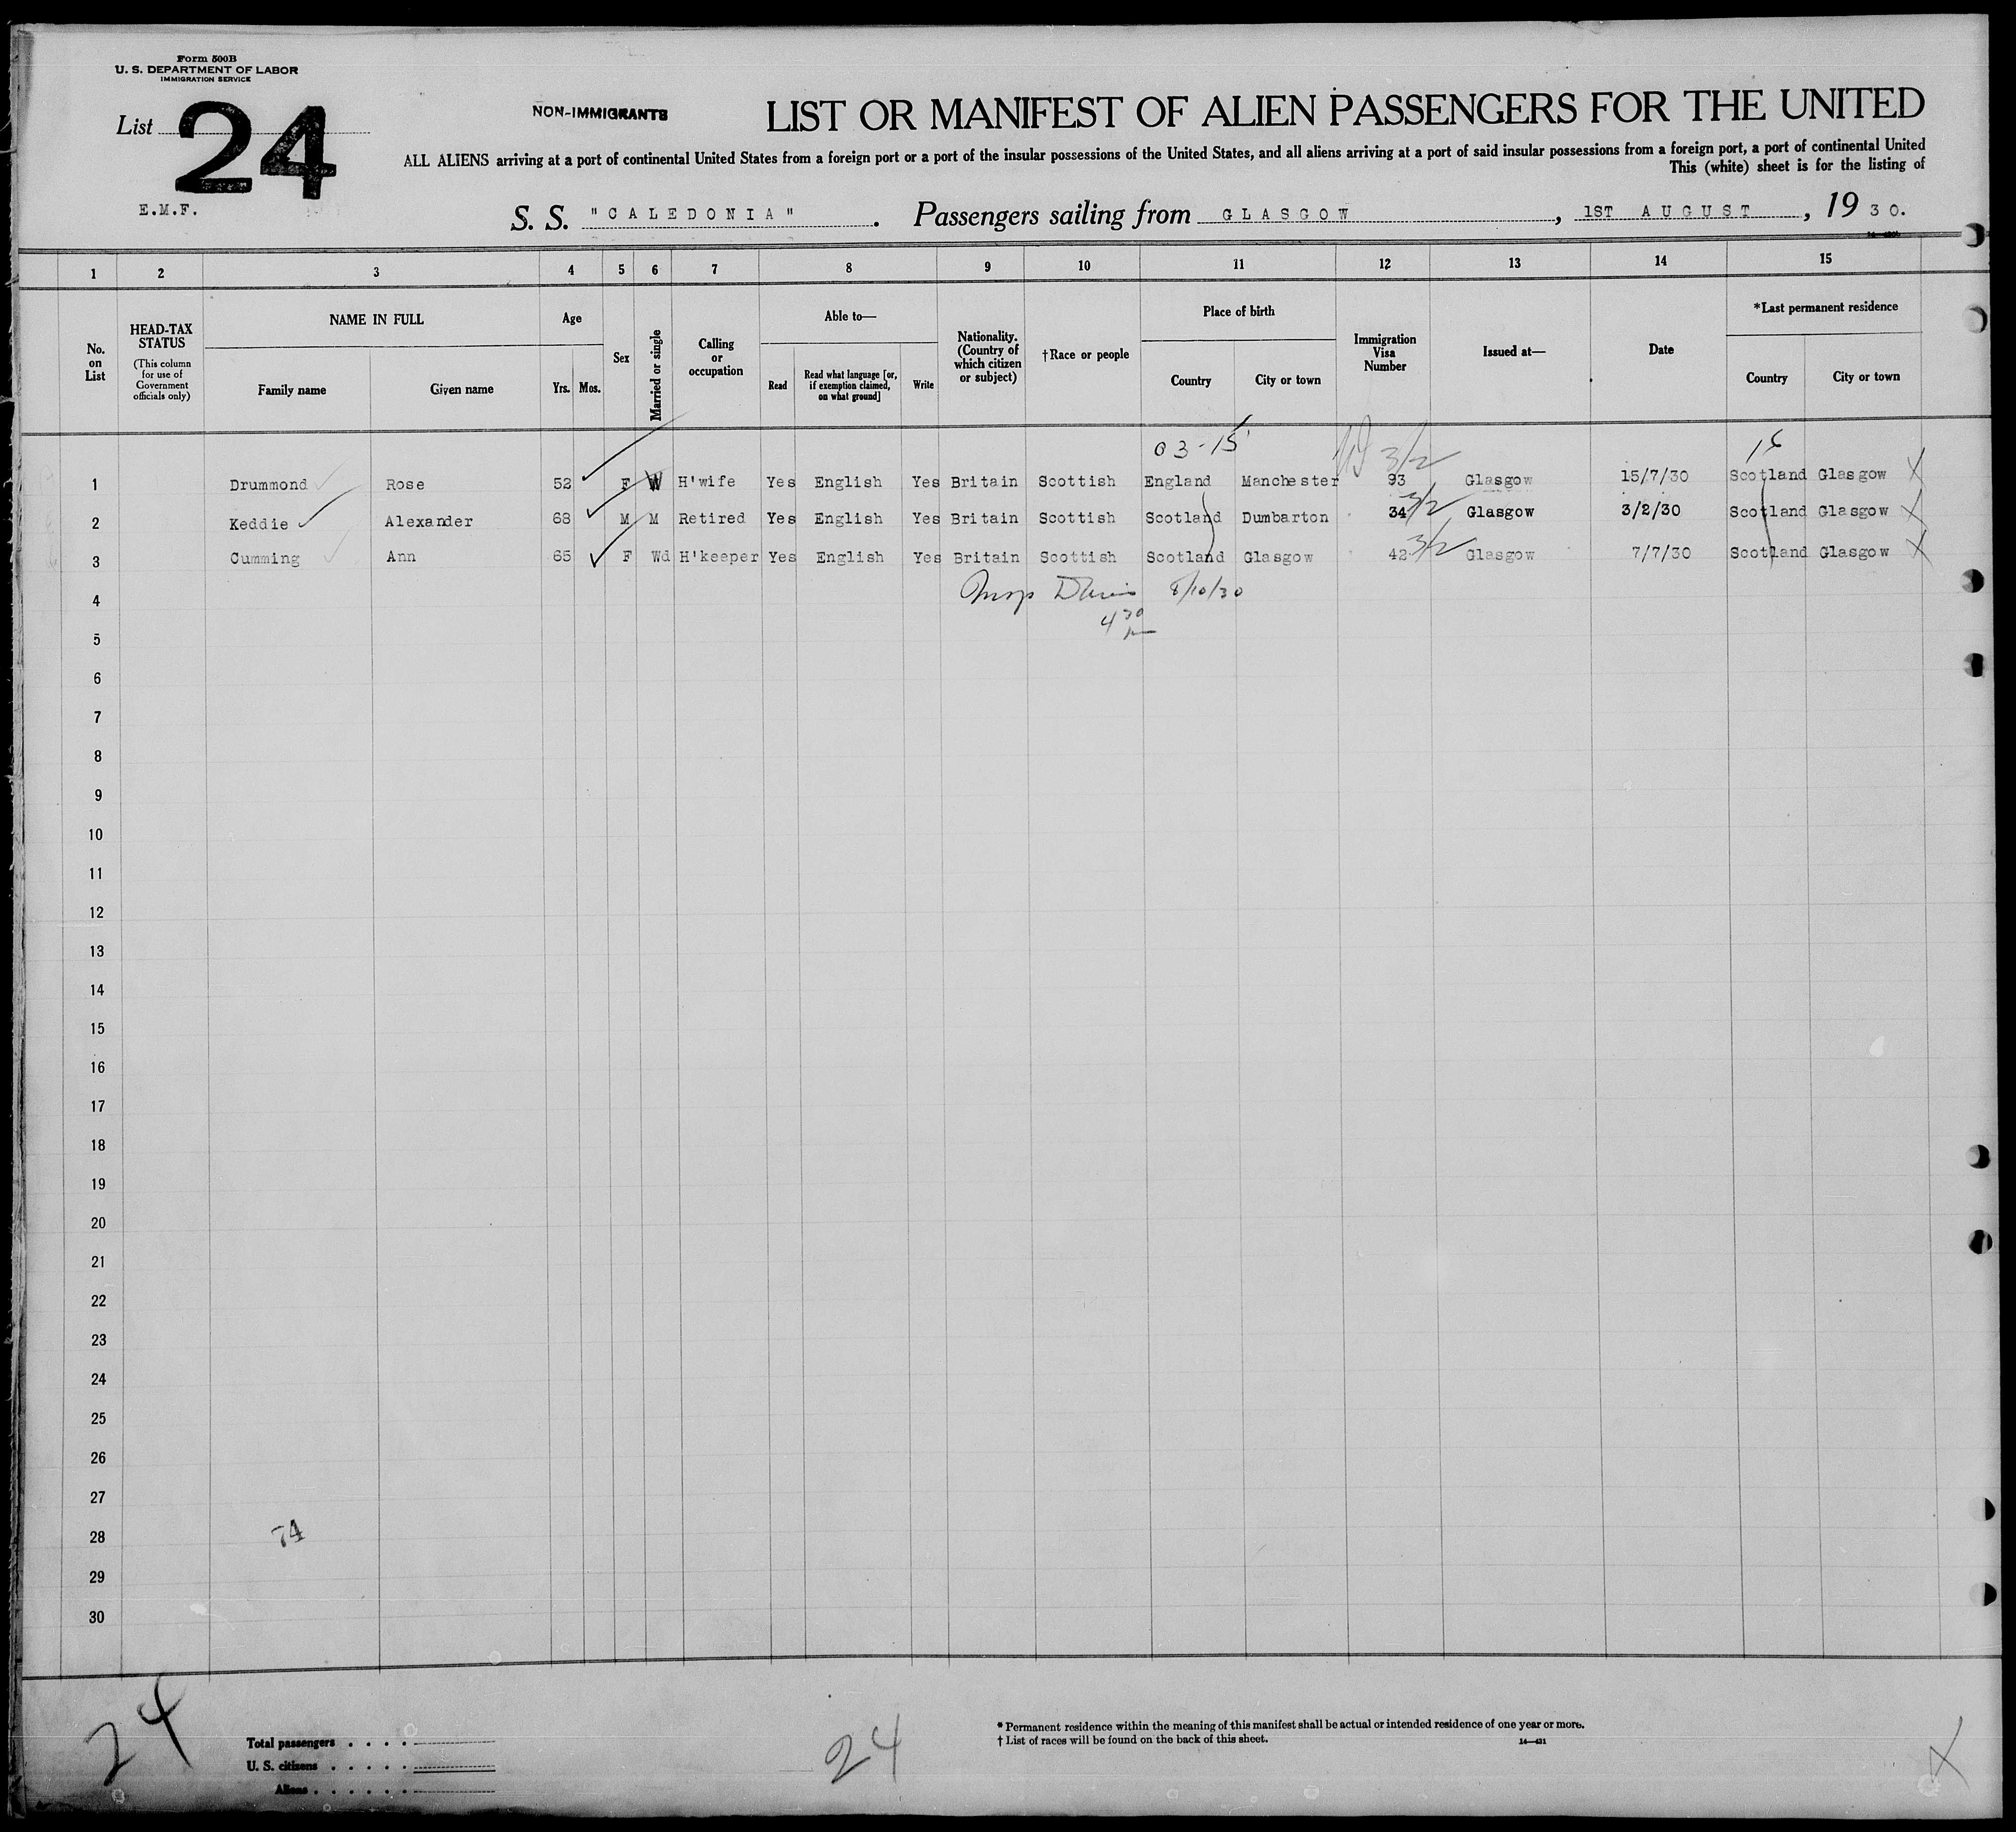 Form 500B
U. S. DEPARTMENT OF LABOR
IMMIGRATION SERVICE
List 24
E.M.F.
NON-IMMIGRANTS
LIST OR MANIFEST OF ALIEN PASSENGERS FOR THE UNITED
ALL ALIENS arriving at a port of continental United States from a foreign port or a port of the insular possessions of the United States, and all aliens arriving at a port of said insular possessions from a foreign port, a port of continental United
This (white) sheet is for the listing of
S. S. "CALEDONIA". Passengers sailing from GLASGOW, 1ST AUGUST, 1930.
1 2 3 4 5 6 7 8 9 10 11 12 13 14 15
No. on List
HEAD-TAX STATUS
(This column for use of Government officials only)
NAME IN FULL
Family name Given name
Age
Yrs. Mos.
Sex
Married or single
Calling or occupation
Able to—
Read
Read what language [or, if exemption claimed, on what ground]
Write
Nationality. (Country of which citizen or subject)
†Race or people
Place of birth
Country City or town
Immigration Visa Number
Issued at—
Date
*Last permanent residence
Country City or town
03-15 3/2
1 Drummond Rose 52 F W H'wife Yes English Yes Britain Scottish England Manchester 93 Glasgow 15/7/30 Scotland Glasgow X
2 Keddie Alexander 68 M M Retired Yes English Yes Britain Scottish Scotland Dumbarton 34 3/2 Glasgow 3/2/30 Scotland Glasgow X
3 Cumming Ann 65 F Wd H'keeper Yes English Yes Britain Scottish Scotland Glasgow 42 3/2 Glasgow 7/7/30 Scotland Glasgow X
4 8/10/30
5 4 30
6
7
8
9
10
11
12
13
14
15
16
17
18
19
20
21
22
23
24
25
26
27
28 74
29
30
24
Total passengers . . . .
U. S. citizens . . . . .
Aliens . . . . . .
24
* Permanent residence within the meaning of this manifest shall be actual or intended residence of one year or more.
† List of races will be found on the back of this sheet.
14—431
X